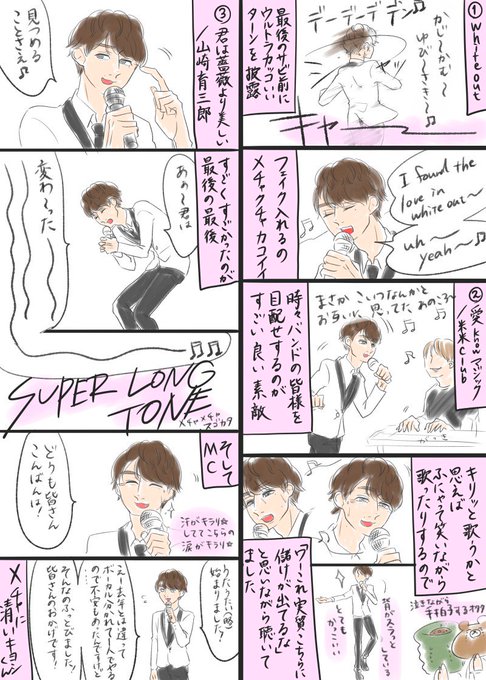 ① Whiteout
デーデーデデン♪
かじ〜かむ〜
ゆび〜さ〜き〜♪
最後のサビ前に
ウルトラカッコいい
ターンを披露
キャー
I found the
love in
white out〜
uh〜
yeah〜♪
フェイク入れるの
メチャクチャカコイイ
② 愛knowマジック
／米米club
まさか こいつなんかと
お互いに 思ってた、あのころ〜
時々バンドの皆様を
目配せするのが
すごい 良い 素敵
キリッと歌うかと
思えば
ふにゃって笑いながら
歌ったりするので
「ワーこれ実質こちらに
儲けが出てるな」
と思いながら聴いて
背がスラッと
している
とても
かっこいい
泣きながら
手拍子するオタク
③ 君は薔薇より美しい
／山崎育三郎
見つめる
ことさえ♪
すごくすごかったのが
最後の最後
あぁ〜君は
変わ〜った
SUPER LONG
TONE
メチャメチャ
スゴカタ
そして
MC
どうも皆さん
こんばんは!
汗がキラリ☆
しててこちらの
涙がキラリ☆
えー去年とは違って
ボーカル分かれて一人でやる
ので不安もあったんですけど
そんなのふっとびました!
皆さんのおかげです!
メチャに
清いキヨくん